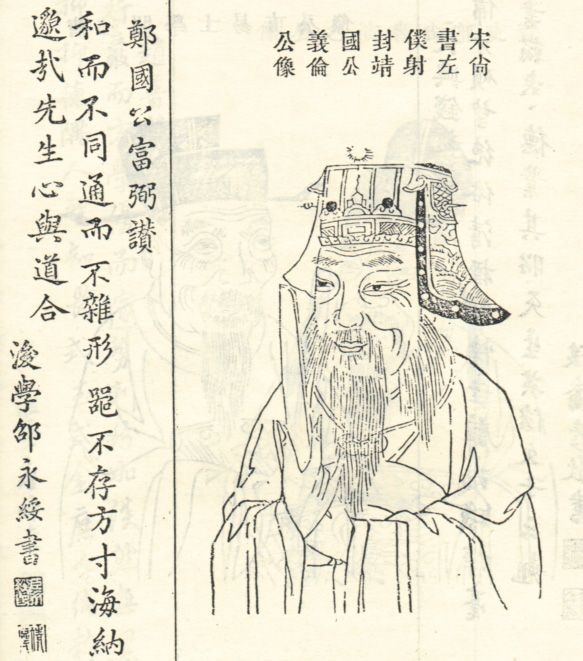 宋尚
書左
僕射
封靖
國公
義倫
公像
鄭國公富弼讃
和而不同通而不雜形噐不存方寸海納
邈㢤先生心與道合
後學邵永綏書